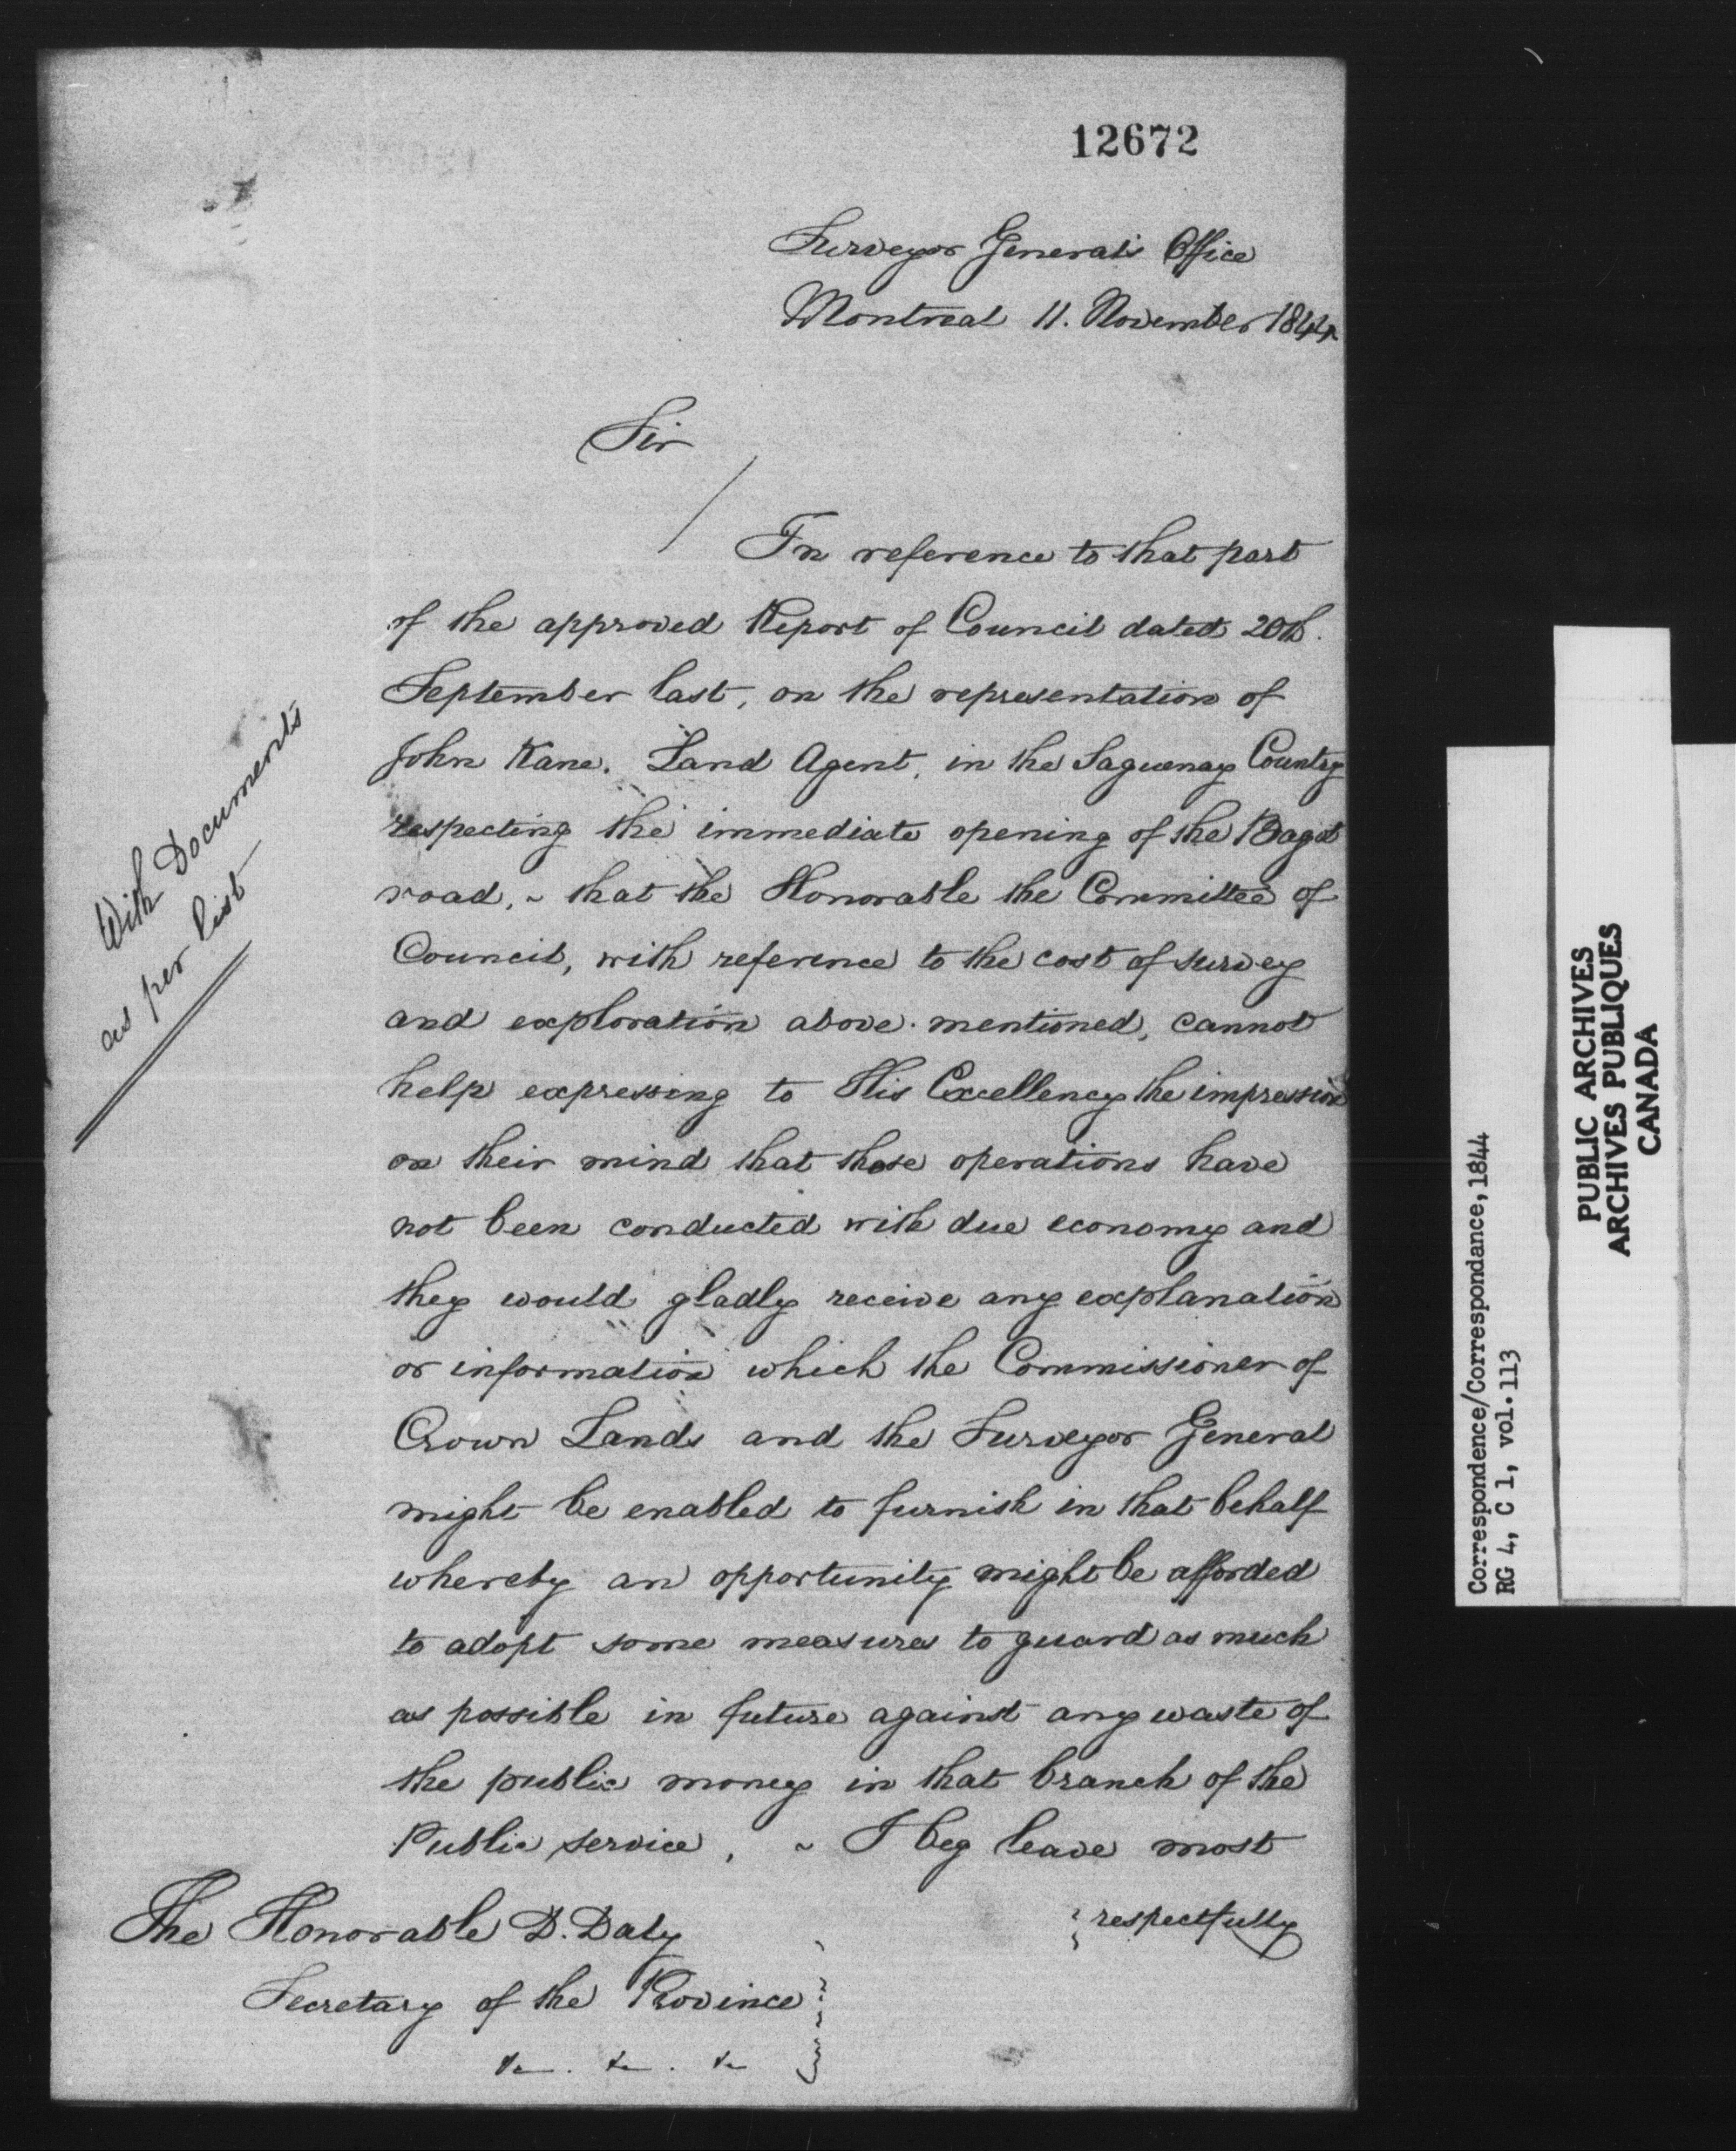 12672
Surveyor General's Office
Montreal 11. November 1844
Sir
In reference to that part
of the approved Report of Council dated 20th.
September last, on the representation of
John Kane. Land Agent, in the Saguenay Country
respecting the immediate opening of the Bagot
road, ~ that the Honorable the Committee of
Council, with reference to the cost of survey
and exploration above-mentioned, cannot
help expressing to His Excellency the impression
on their mind that those operations have
not been conducted with due economy and
they would gladly receive any explanation
or information which the Commissioner of
Crown Lands and the Surveyor General
might be enabled to furnish in that behalf
whereby an opportunity might be afforded
to adopt some measures to guard as much
as possible in future against any waste of
the public money in that branch of the
Public service, ~ I beg leave most
respectfully
The Honorable D. Daly
Secretary of the Province
&c. &c. &c
With Documents
as per list
Correspondence/Correspondance, 1844
RG 4, C 1, vol. 113
PUBLIC ARCHIVES
ARCHIVES PUBLIQUES
CANADA